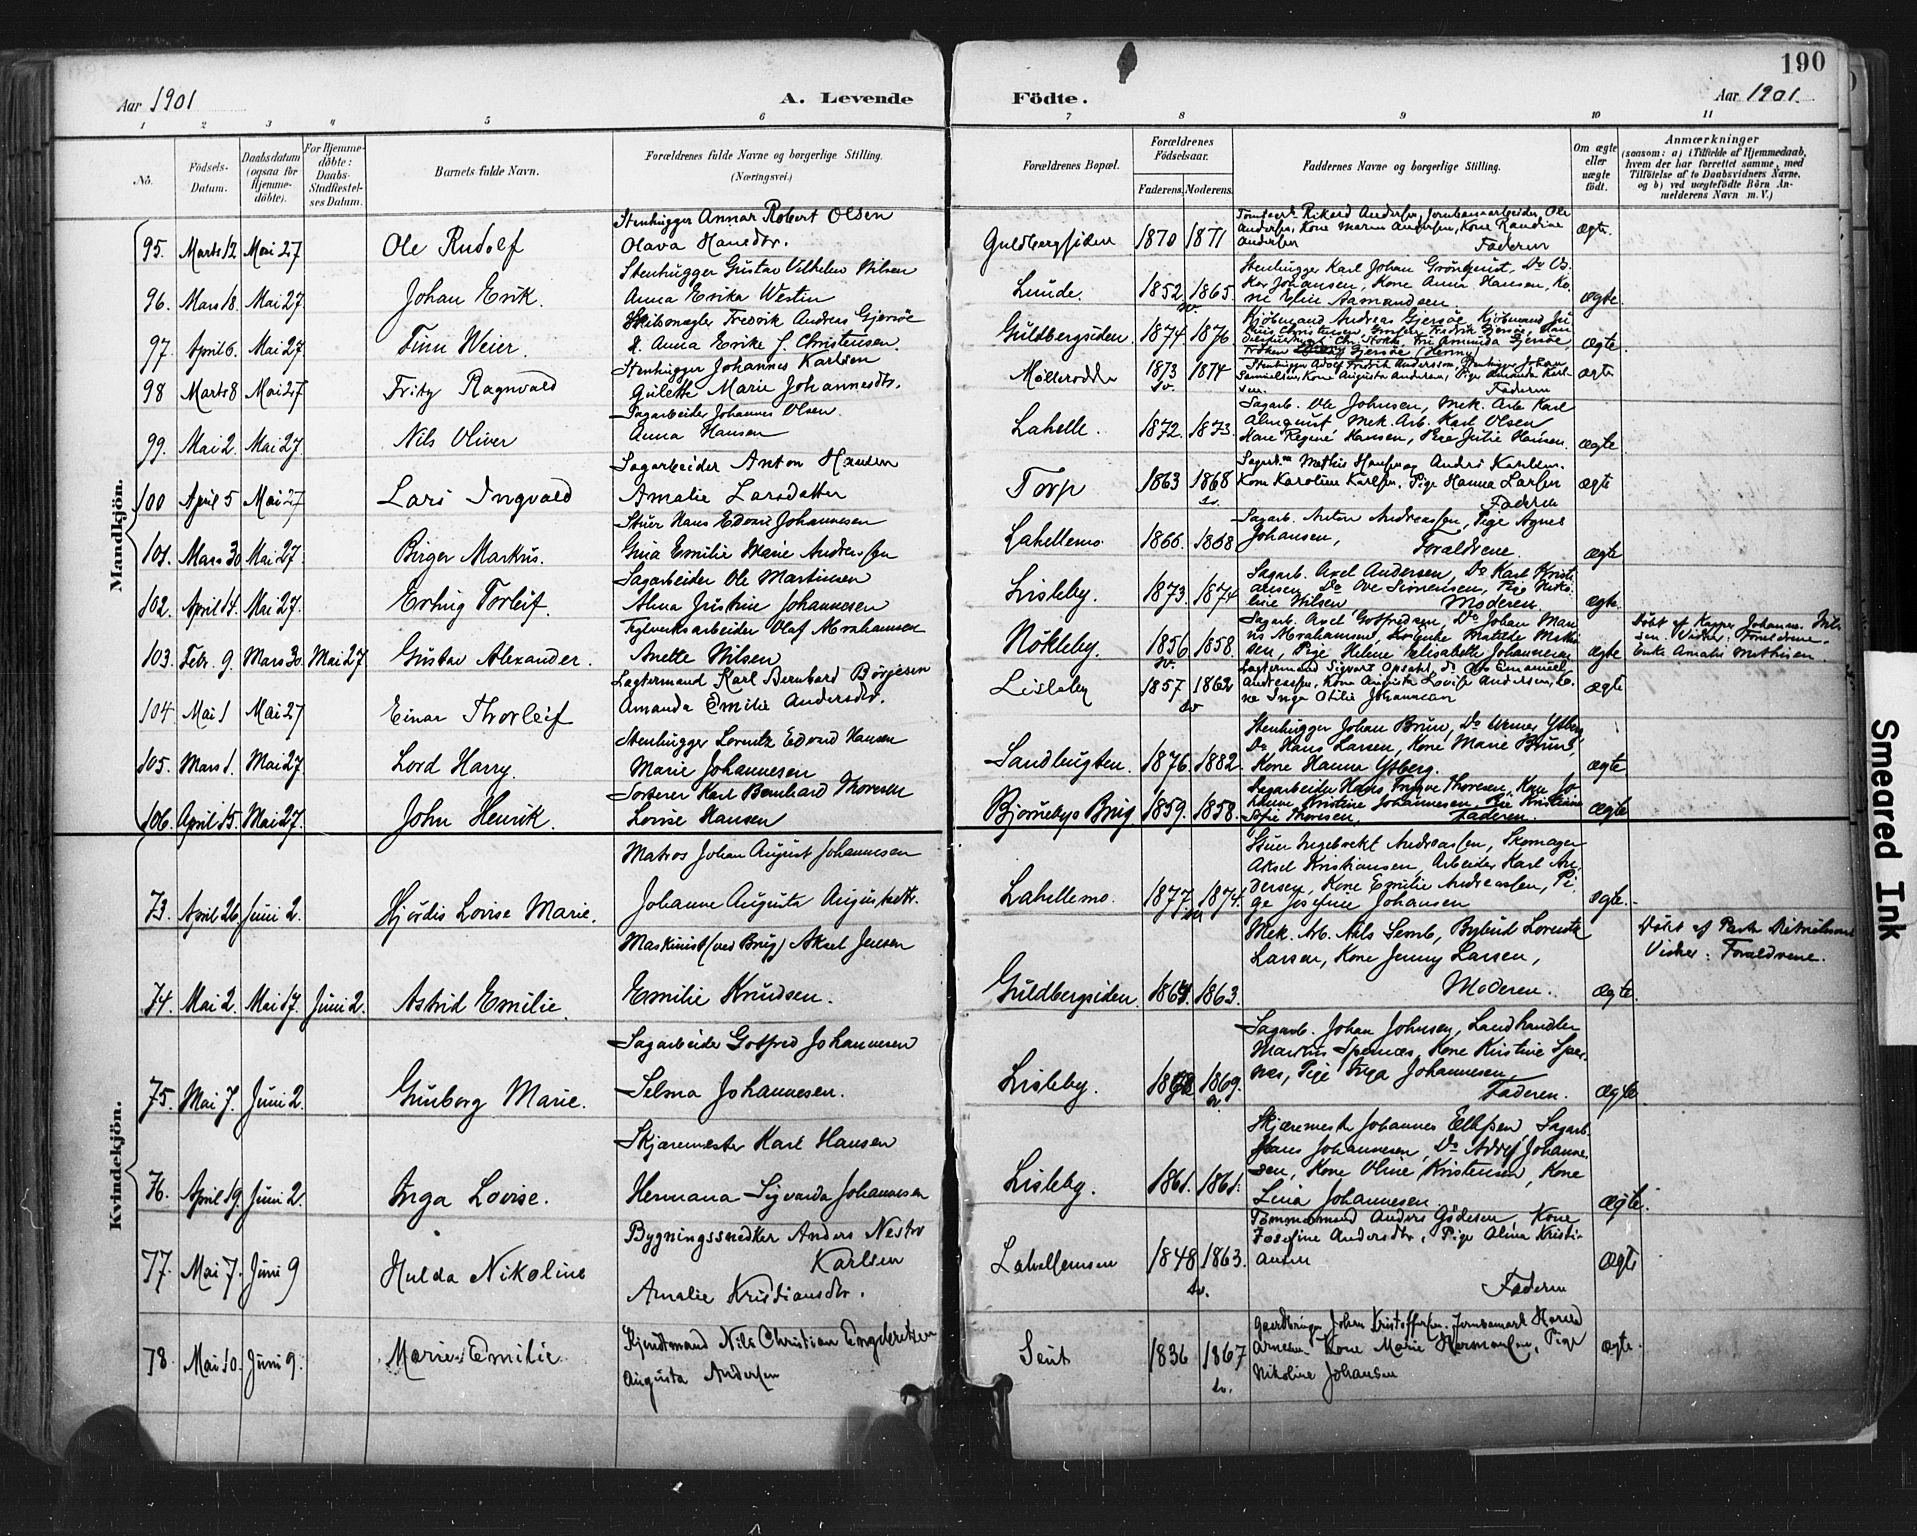 190
Aar 1901
A. Levende
Födte.
Aar 1901.
1 2 3 4 5 6 7 8 9 10 11
No.
Födsels-Datum.
Daabsdatum (ogsaa for Hjemme-döbte).
For Hjemme-döbte: Daabs-Stadfæstel-ses Datum.
Barnets fulde Navn.
Forældrenes fulde Navne og borgerlige Stilling. (Næringsvei.)
Forældrenes Bopæl.
Forældrenes Födselsaar.
Faderens. Moderens.
Faddernes Navne og borgerlige Stilling.
Om ægte eller uægte födt.
Anmærkninger
(saasom: a) i Tilfælde af Hjemmedaab, hvem der har forrettet samme, med Tilföielse af to Daabsvidners Navne, og b) ved uægtefödte Börn An-melderens Navn m. V.)
Mandkjön.
95. Marts 12 Mai 27 Ole Rudolf
Stenhugger Annar Robert Olsen
Olava Hansdtr.
Guldbergsiden 1870 1871
Andersen, Kone Maren Andersen, Kone Randine
Andersen Faderen
ægte.
96. Mars 18. Mai 27 Johan Erik.
Stenhugger Gustav Vilhelm Nilsen
Anna Erika Westin
Lunde. 1852 1865.
Stenhugger Karl Johan Grönquist, Do Os-
kar Johansen, Kone Anna Hansen, Ko-
ne Eline Aamundsen.
ægte.
97. April 6. Mai 27 Finn Weier.
Skibsmægler Fredrik Andreas Gjersöe
& Anna Erike f. Christensen.
Guldbergsiden 1874 1876
Kjöbmand Andreas Gjersöe, Kjöbmand
Fröken Gjersöe (Henny)
ægte
98 Marts 8 Mai 27 Fritz Ragnvald
Stenhugger Johannes Karlsen
Gulette Marie Johannesdtr.
1873 1874
sv.
Stenhugger Adolf Fredrik Andersson, Stenhugger Johan
Samuelsen, Kone Augusta Andersen, Pige Amanda Karl-
sen Faderen
ægte
99. Mai 2. Mai 27. Nils Oliver
Sagarbeider Johannes Olsen.
Anna Hansen
Lahelle. 1872. 1873.
Sagarb. Ole Johnsen, Mek. Arb. Karl
Almquist, Mek. Arb. Karl Olsen
Kone Regine Hansen, Pige Julie Hansen.
ægte
100 April 5 Mai 27 Lars Ingvald
Sagarbeider Anton Hansen
Amalie Larsdatter
Torp 1863 1868
sv.
Kone Karoline Karlsen, Pige Hanna Larsen
Faderen
ægte
101. Mars 30 Mai 27. Birger Markus.
Stuer Hans Edvard Johannesen
Gina Emilie Marie Andreassen
Lahellemo 1866. 1868
Sagarb. Anton Andreassen, Pige Agnes
Johansen, Forældrene.
ægte
102. April 14. Mai 27. Erling Torleif.
Sagarbeider Ole Martinsen
Alma Justine Johannesen
Lisleby. 1873. 1874
Sagarb. Axel Andersen, Do Karl Kristi-
ansen, Do Ove Simensen, Pige Niko-
line Nilsen Moderen.
ægte.
103. Febr. 9. Mars 30. Mai 27 Gustav Alexander.
Teglverksarbeider Olaf Abrahamsen
Anette Nilsen
Nökleby. 1856 1858.
Sagarb. Axel Gotfredsen, Do Johan Mau-
sen, Pige Helene Elisabeth Johannesen
ægte
Döbt af Kasper Johannes Nil-
sen. Vidner: Forældrene.
Enke Amalie Mathisen
104 Mai 1 Mai 27 Einar Thorleif
Lagtermand Karl Bernhard Börgesen
Amanda Emilie Andersdtr.
Lisleby 1857 1862
sv
Lagtermand Sigvart Opsahl, Do Otto Emanuel
Andreassen, Kone Augusta Lovise Andersen, Ko-
ne Inga Otilie Johannesen
ægte
105. Mars 1. Mai 27 Lord Harry.
Stenhugger Lorentz Edvard Hansen
Marie Johannesen
Sandbugten. 1876. 1882.
Stenhugger Johan Bruu, Do Werner Ytberg
Do Hans Larsen, Kone Marie Bruu
Kone Hanna Ytberg.
ægte
106. April 15. Mai 27. John Henrik.
Sorterer Karl Bernhard Thoresen
Lovise Hansen
Bjørnebys Brug. 1859. 1858.
Sagarbeider Hans Trygve Thoresen, Kone Jo-
hanne Kristine Johannesen, Pige Kristiane
Sofie Thoresen. Faderen.
ægte
Kvindekjön.
73. April 26. Juni 2. Hjördis Lovise Marie.
Matros Johan August Johannesen
Johanne Augusta Augustsdtr.
Lahellemo. 1877. 1874.
Stuer Ingebrekt Andreassen, Skomager
Aksel Kristiansen, Arbeider Karl An-
dersen, Kone Emilie Andreassen, Pi-
ge Josefine Johansen
ægte.
74. Mai 2. Mai 17. Juni 2. Astrid Emilie.
Maskinist (ved Brug) Aksel Jensen
Emilie Knudsen.
Guldbergsiden. 1863.
Mek. Arb. Nils Semb, Bybud Lorentz
Larsen, Kone Jenny Larsen,
Moderen.
ægte.
Vidner: Forældrene.
75. Mai 7. Juni 2. Gunborg Marie.
Sagarbeider Gotfred Johannesen
Selma Johannesen.
Lisleby. 1869.
Sagarb. Johan Johnsen, Landhandler
Markus Spernæs, Kone Kirstine Sper-
næs, Pige Inga Johannesen.
Faderen.
ægte
76. April 19. Juni 2. Inga Lovise.
Skjæremester Karl Hansen
Hermana Sigvarda Johannesen
Lisleby. 1861. 1861.
Skjæremester Johannes Ellefsen Sagarb.
Hans Johannesen, Do Adolf Johanne-
sen, Kone Oline Kristensen, Kone
Lina Johannesen
ægte.
77. Mai 7. Juni 9 Hulda Nikoline
Bygningssnedker Anders Nestor
Karlsen
Amalie Kristiansdtr.
Lahellemoen 1848 1863.
sv.
Tømmermand Anders Gödesen, Kone
Josefine Andersdtr, Pige Alma Kristi-
ansen
Faderen
ægte
78. Mai 10. Juni 9. Marie Emilie
Kjendtmand Nils Christian Engebretsen
Augusta Andersen
Seut 1836 1867
sv.
Gaardbruger Johan Kristoffersen, Jernbanearb Harald
Arnesen, Kone Marie Hermansen, Pige
Nikoline Johansen
ægte.
Smeared Ink